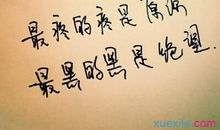 最疼的疼是原谅
最黑的黑是绝望
xuexila.com